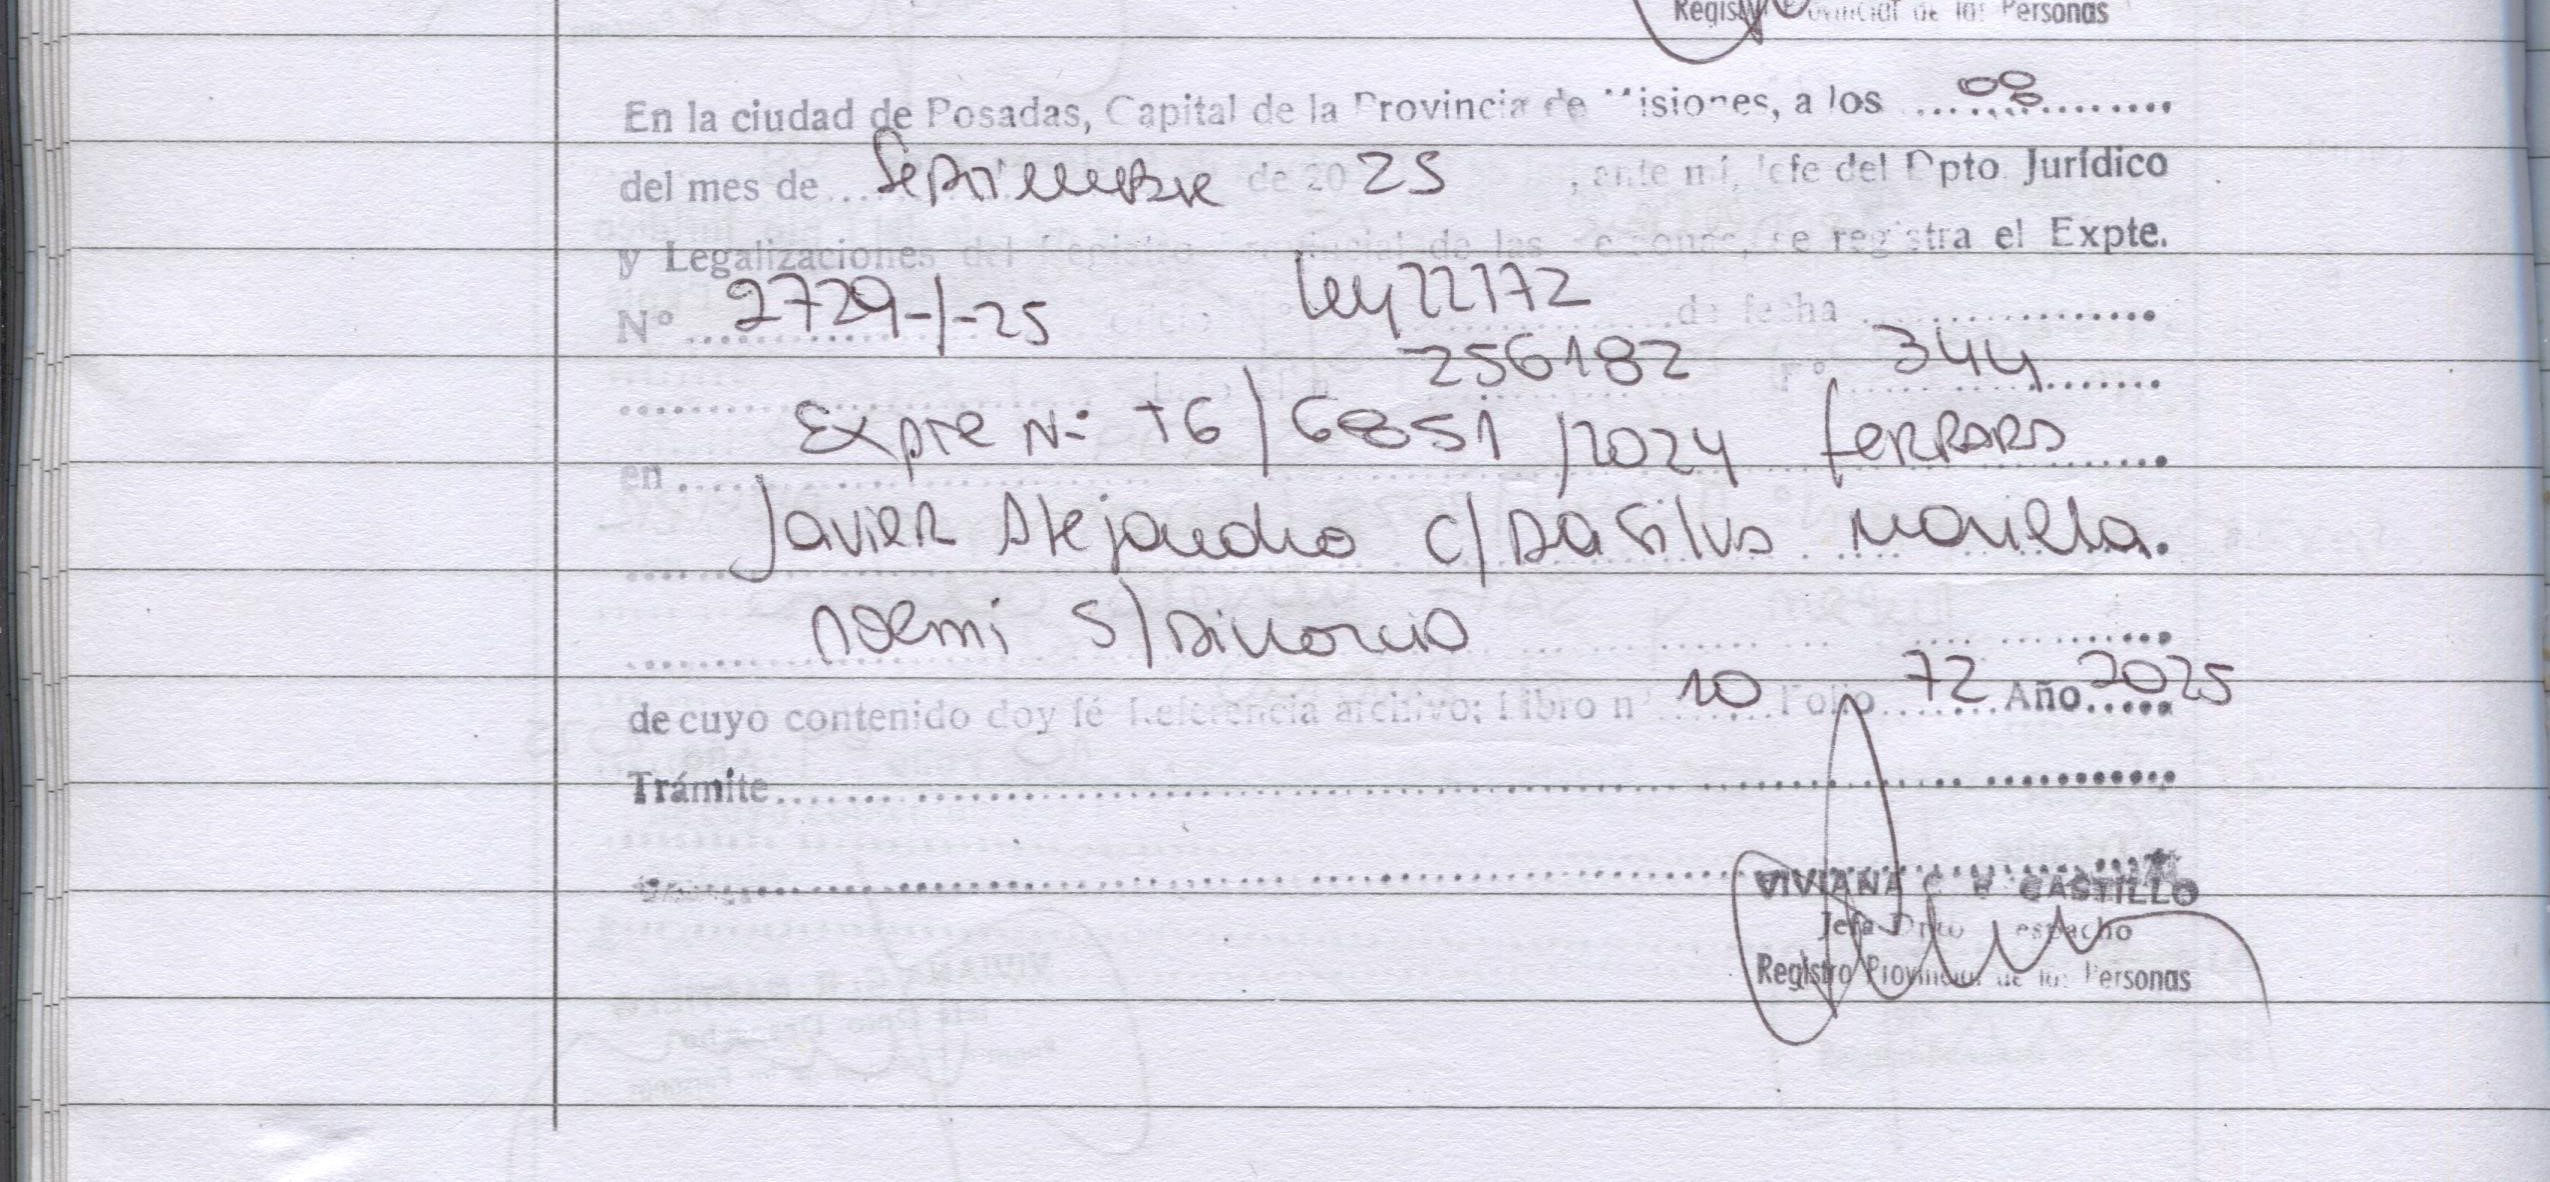 Registro Provincial de las Personas
En la ciudad de Posadas, Capital de la Provincia de Misiones, a los 08
del mes de Septiembre de 20 25, ante mí, Jefe del Dpto. Jurídico
y Legalizaciones del Registro Provincial de las Personas, se registra el Expte.
Nº 2729-/-25 Ley 22172 de fecha
256182 Nº 344
Expte N: 16/6851/2024 Ferrara
en
Javier Alejandro c/ Da Silva Mariela.
Noemi s/ Divorcio
de cuyo contenido doy fé Referencia archivo: Libro nº 10 Folio 72 Año 2025
Trámite
VIVIANA C. R. CASTILLO
Jefa Dpto Despacho
Registro Provincial de las Personas